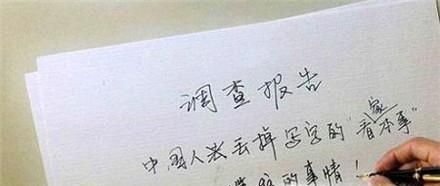 调查报告
中国人丢掉写字的“看家本事”
的事情!